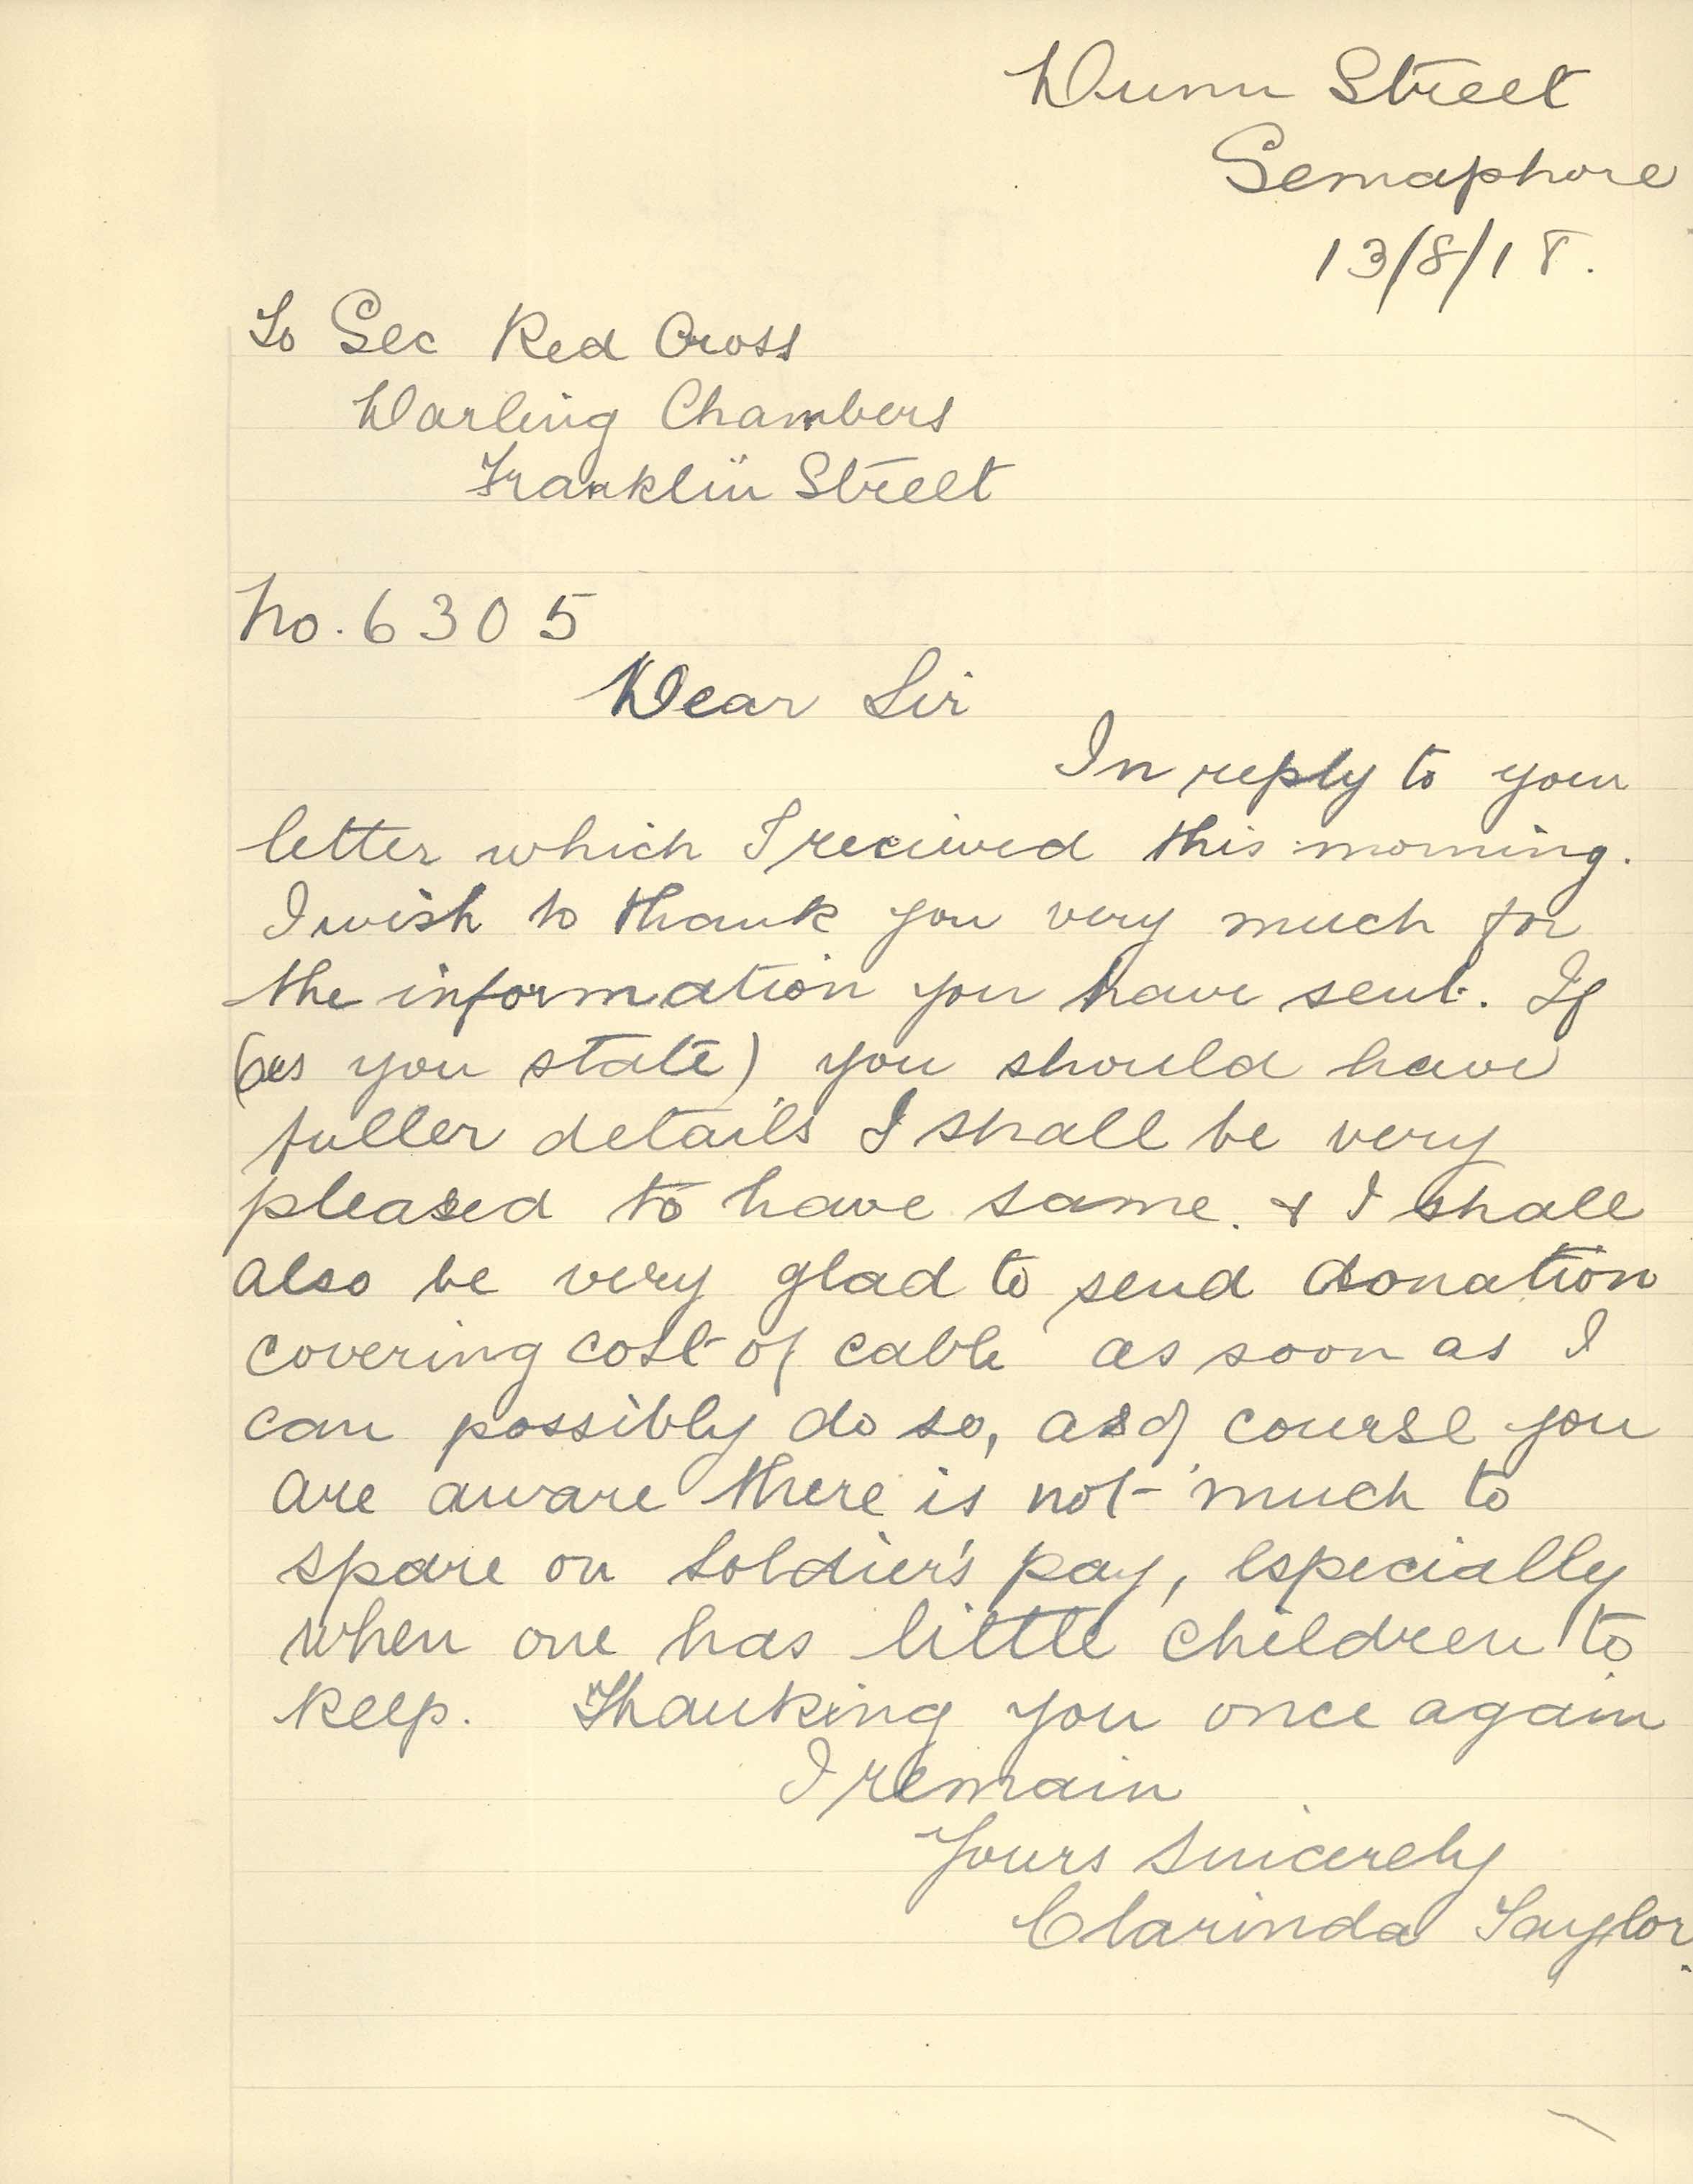 Dunn Street
Semaphore
13/8/18.
To Sec Red Cross
Darling Chambers
Franklin Street
No. 6305
Dear Sir
In reply to your
letter which I recieved this morning.
I wish to thank you very much for
the information you have sent. If
(as you state) you should have
fuller details I shall be very
pleased to have same. & I shall
also be very glad to send donation
covering cost of cable as soon as I
can possibly do so, as of course you
are aware there is not much to
spare on soldier's pay, especially
when one has little children to
keep. Thanking you once again
I remain
Yours Sincerely
Clarinda Taylor.